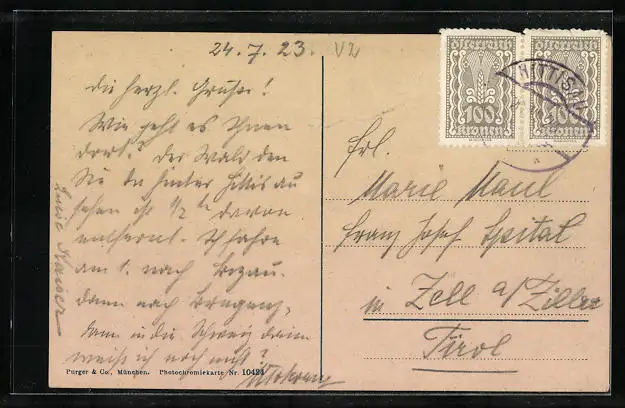 24. 7. 23.
V2
die herzl. Grüße!
Wie geht es Ihnen
dort? Der Wald den
Sie da hinter Hittisau
sehen ist 1/2 h davon
entfernt. Ich fahre
am 1. nach Bezau.
dann nach Bregenz,
dann in die Schweiz, dann
weiß ich noch nicht?
Luise
Österreich
100
Kronen
Österreich
100
Kronen
HITTISAU
Frl.
Marie Maul
Franz Josef Spital
in Zell a/Ziller
Tirol
Purger & Co., München. Photochromiekarte Nr. 10424